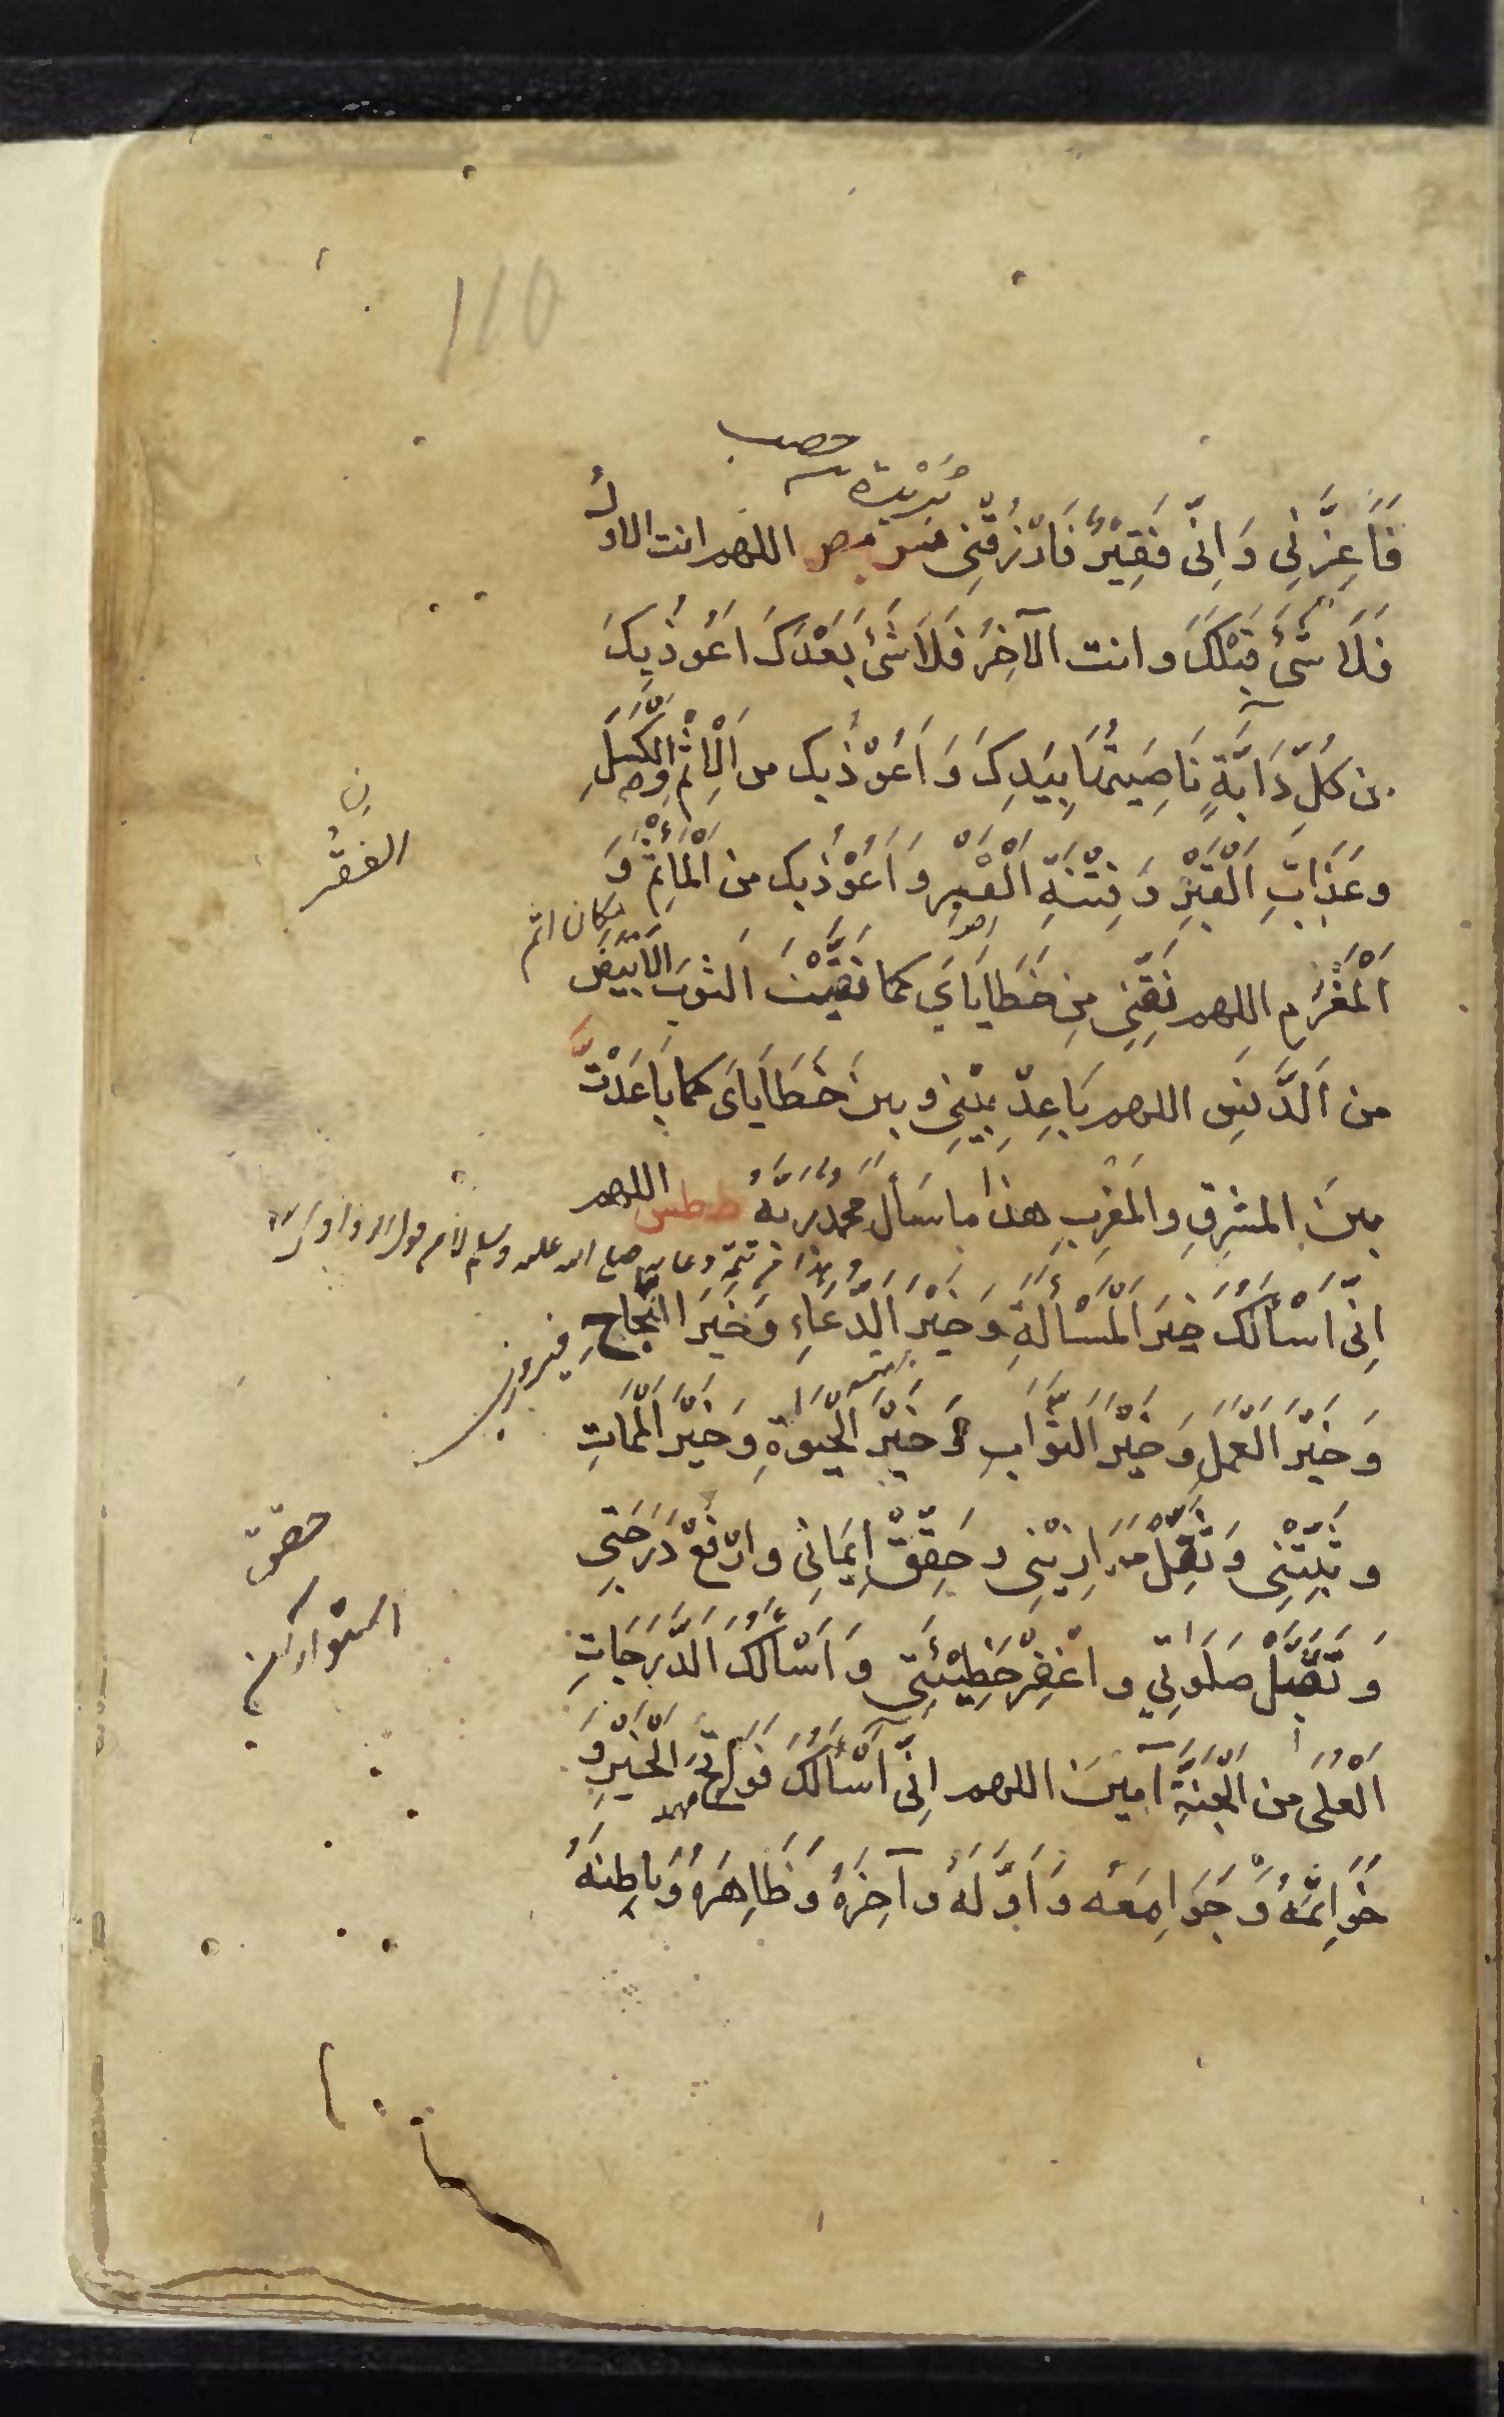 110
فَأَعِزَّنِي وَاِنِّي فَقِيْرٌ فَارْزُقْنِي مس مص اللهم انت الاول
فَلَا شَيْءَ قَبْلَكَ وانت الآخِرُ فَلَا شَيْءَ بَعْدَكَ اَعُوذُ بِكَ
من كُلِّ دَابَّةٍ نَاصِيَتُهَا بِيَدِكَ وَاَعُوْذُ بِكَ من الْاِثْمِ وَالْكَسَلِ
وعَذَابِ الْقَبْرِ وَفِتْنَةِ الْقَبْرِ وَاَعُوْذُ بِكَ من الْمَأْثَمِ وَ
الْمَغْرَمِ اللهم نَقِّنِي مِن خَطَايَايَ كما نَقَّيْتَ الثوبَ الْاَبْيَضَ
من الدَّنَسِ اللهم بَاعِدْ بَيْنِي وبين خَطَايَايَ كما بَاعَدْتَّ
بينَ المشرِقِ والمَغْرِبِ هذا ما سَأَلَ محمدٌ رَبَّهُ ط طس اللهم
اِنِّي اَسْأَلُكَ خيرَ الْمَسْأَلَةِ وَخَيْرَ الدُّعَاءِ وَخَيْرَ النَّجَاحِ
وَخَيْرَ الْعَمَلِ وَخَيْرَ الثَّوَابِ وَخَيْرَ الْحَيٰوةِ وَخَيْرَ الْمَمَاتِ
وثَبِّتْنِي وَثَقِّلْ مَوَازِيْنِي وحَقِّقْ اِيمَانِي وارْفَعْ دَرَجَتِي
وَتَقَبَّلْ صَلَوٰتِي واغْفِرْ خَطِيْئَتِي وَاَسْأَلُكَ الدَّرَجَاتِ
الْعُلَىٰ من الْجَنَّةِ آمينَ اللهم اِنِّي اَسْأَلُكَ فَوَاتِحَ الْخَيْرِ وَ
خَوَاتِمَهُ وَجَوَامِعَه وَاَوَّلَهُ وآخِرَهُ وَظَاهِرَهُ وَبَاطِنَهُ
الفقر